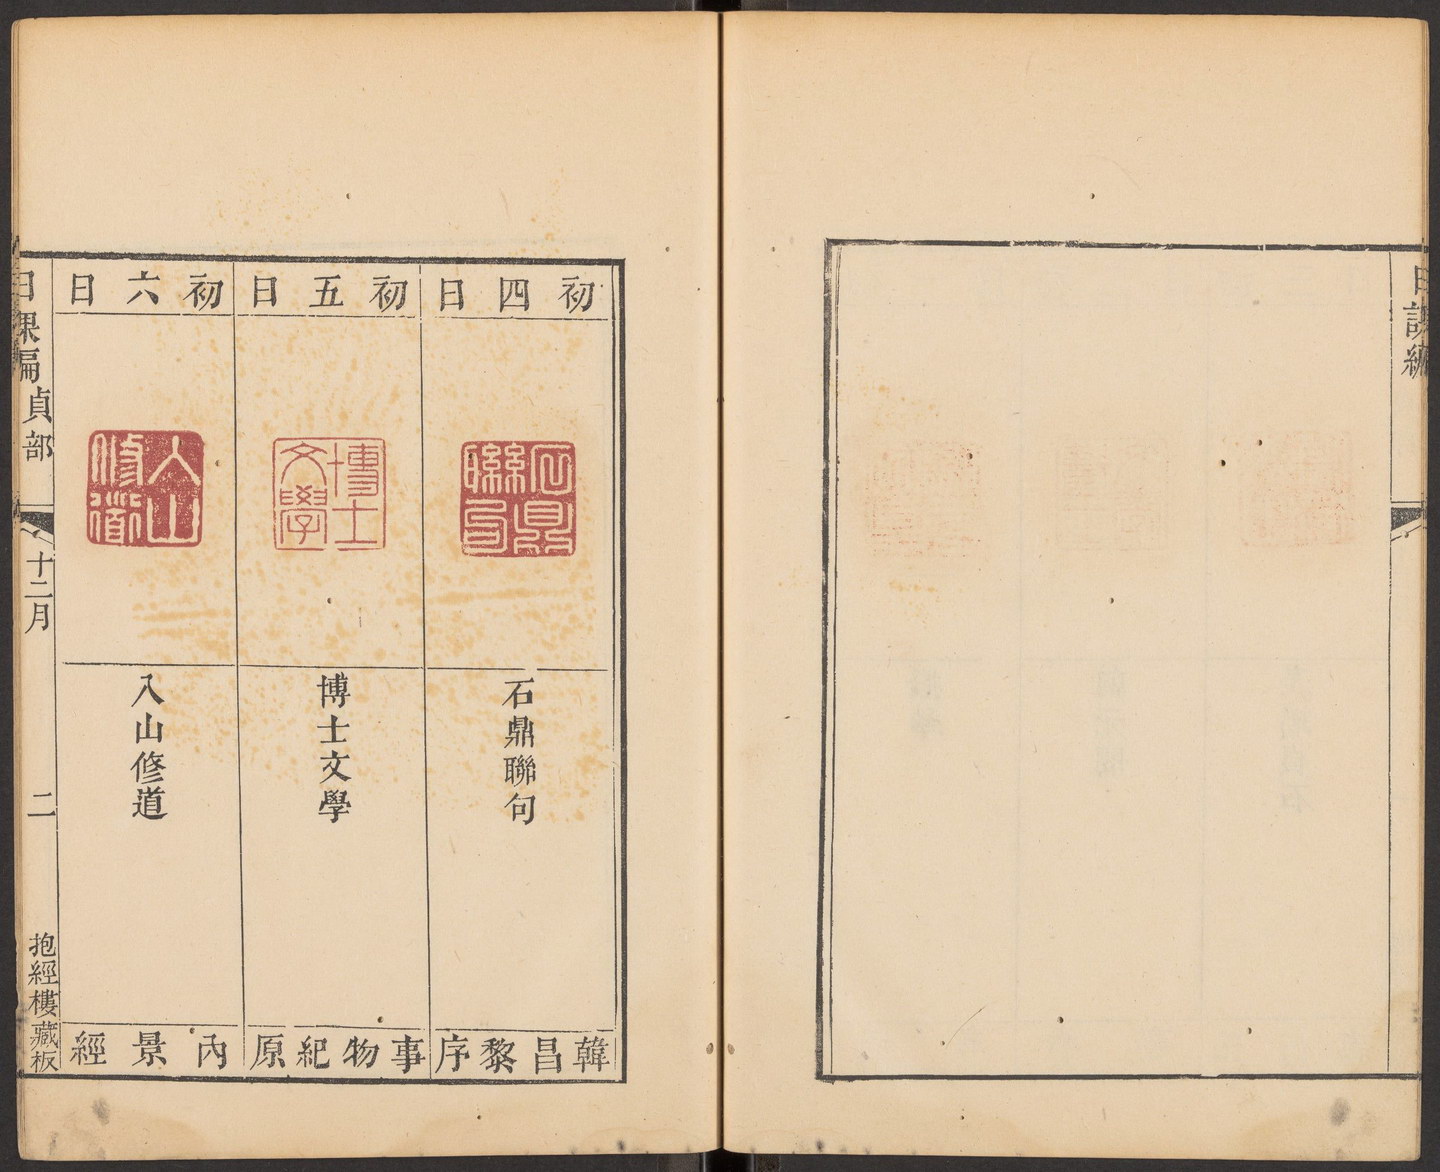 日課編
初四日
石鼎聯句
石鼎聯句
韓昌黎序
初五日
博士文學
博士文學
事物紀原
初六日
入山修道
入山修道
內景經
日課編 貞部
十二月
二
抱經樓藏板